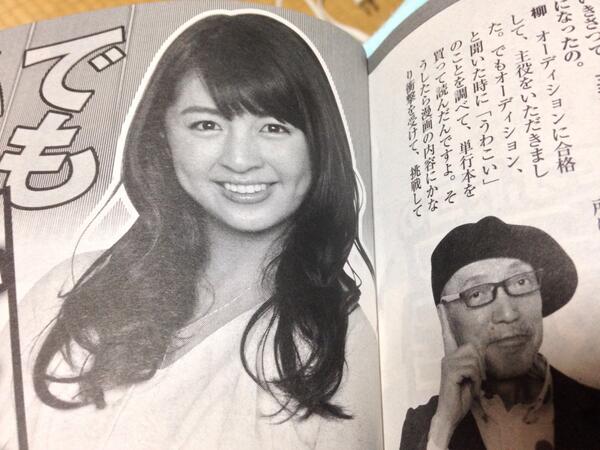 でも
いきさつで
になったの。
柳 オーディションに合格
して、主役をいただきまし
た。でもオーディション、
と聞いた時に「うわこい」
のことを調べて、単行本を
買って読んだんですよ。そ
うしたら漫画の内容にかな
り衝撃を受けて、挑戦して